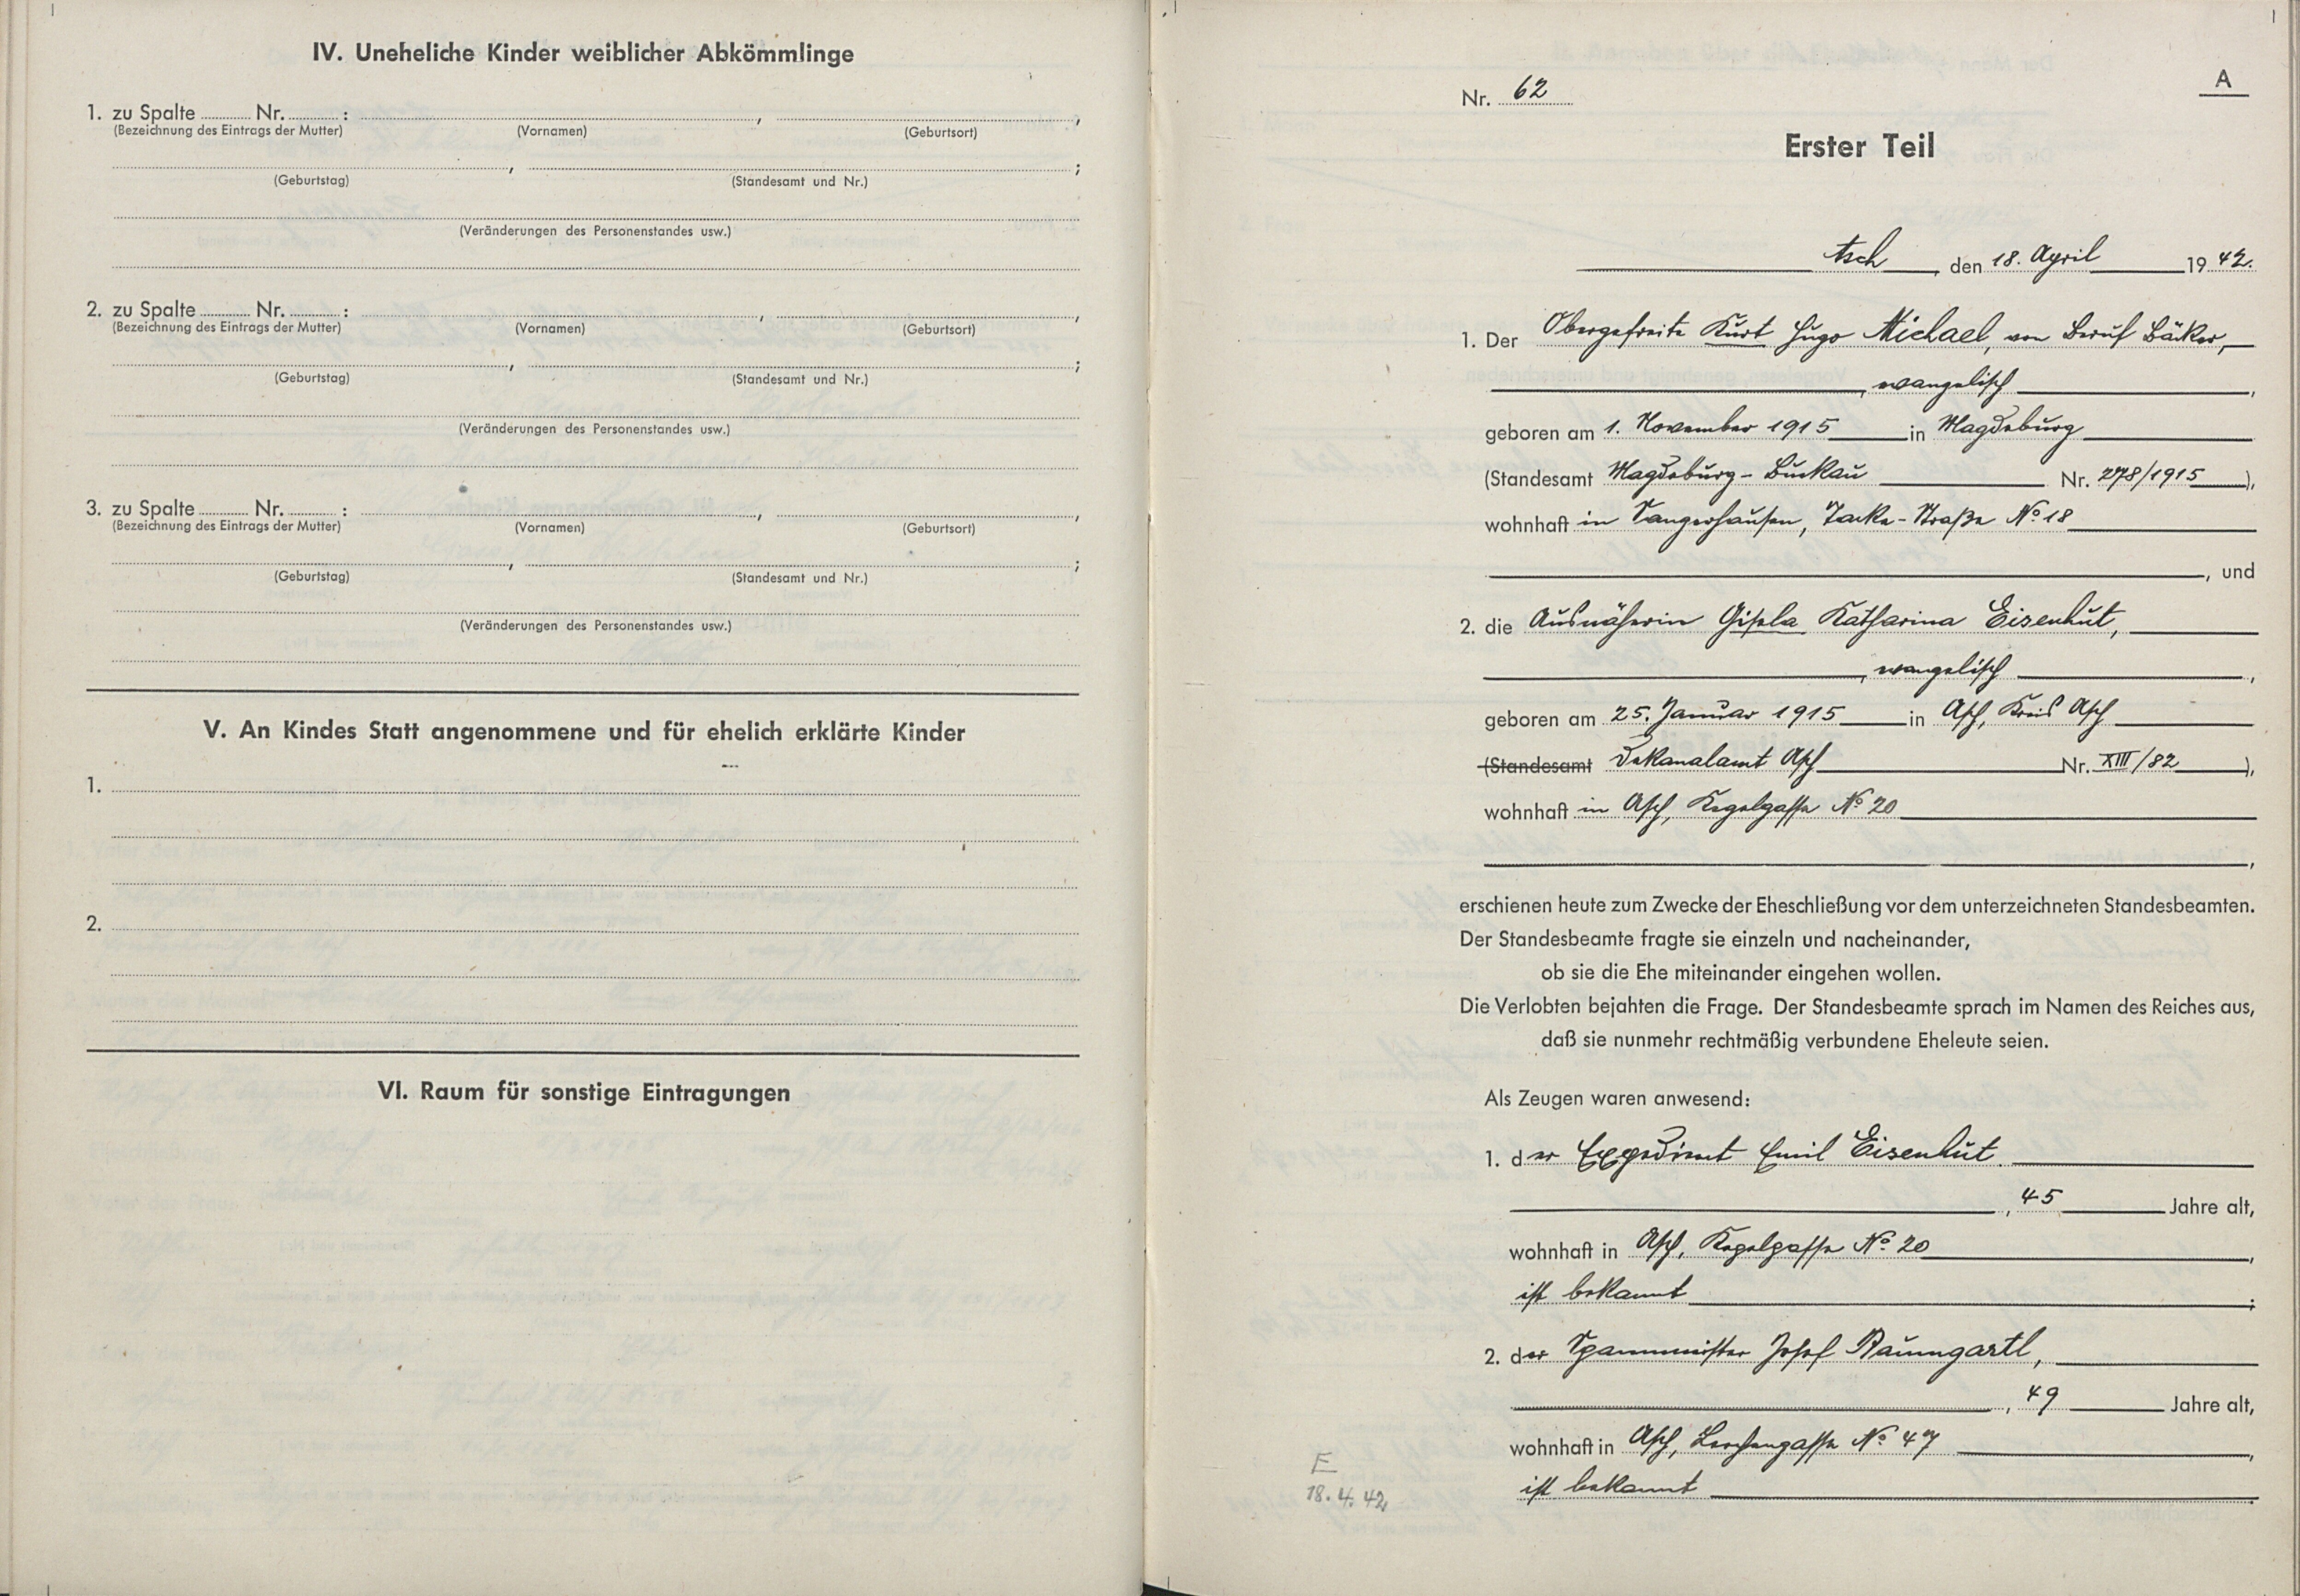 IV. Uneheliche Kinder weiblicher Abkömmlinge
1. zu Spalte ........ Nr. ........ :
(Bezeichnung des Eintrags der Mutter) (Vornamen) , (Geburtsort) ,
(Geburtstag) , (Standesamt und Nr.) ;
(Veränderungen des Personenstandes usw.)
2. zu Spalte ........ Nr. ........ :
(Bezeichnung des Eintrags der Mutter) (Vornamen) , (Geburtsort) ,
(Geburtstag) , (Standesamt und Nr.) ;
(Veränderungen des Personenstandes usw.)
3. zu Spalte ........ Nr. ........ :
(Bezeichnung des Eintrags der Mutter) (Vornamen) , (Geburtsort) ,
(Geburtstag) , (Standesamt und Nr.) ;
(Veränderungen des Personenstandes usw.)
V. An Kindes Statt angenommene und für ehelich erklärte Kinder
1.
2.
VI. Raum für sonstige Eintragungen
A
Nr. 62
Erster Teil
Asch, den 18. April 1942.
1. Der Obergefreite Kurt Hugo Michael, von Beruf Bäcker,
, evangelisch ,
geboren am 1. November 1915 in Magdeburg
(Standesamt Magdeburg-Buckau Nr. 278/1915 ),
wohnhaft in Sangerhausen, Tacke-Straße No 18
, und
2. die Ausnäherin Gisela Katharina Eisenhut,
, evangelisch ,
geboren am 25. Januar 1915 in Asch, Kreis Asch
(Standesamt Dekanalamt Asch Nr. XIII/82 ),
wohnhaft in Asch, Kegelgasse No 20
,
erschienen heute zum Zwecke der Eheschließung vor dem unterzeichneten Standesbeamten.
Der Standesbeamte fragte sie einzeln und nacheinander,
ob sie die Ehe miteinander eingehen wollen.
Die Verlobten bejahten die Frage. Der Standesbeamte sprach im Namen des Reiches aus,
daß sie nunmehr rechtmäßig verbundene Eheleute seien.
Als Zeugen waren anwesend:
1. der Expedient Emil Eisenhut
, 45 Jahre alt,
wohnhaft in Asch, Kegelgasse No 20 ,
ist bekannt ;
2. der Spannmeister Josef Baumgartl,
, 49 Jahre alt,
wohnhaft in Asch, Lerchengasse No 47 ,
ist bekannt
E
18. 4. 42